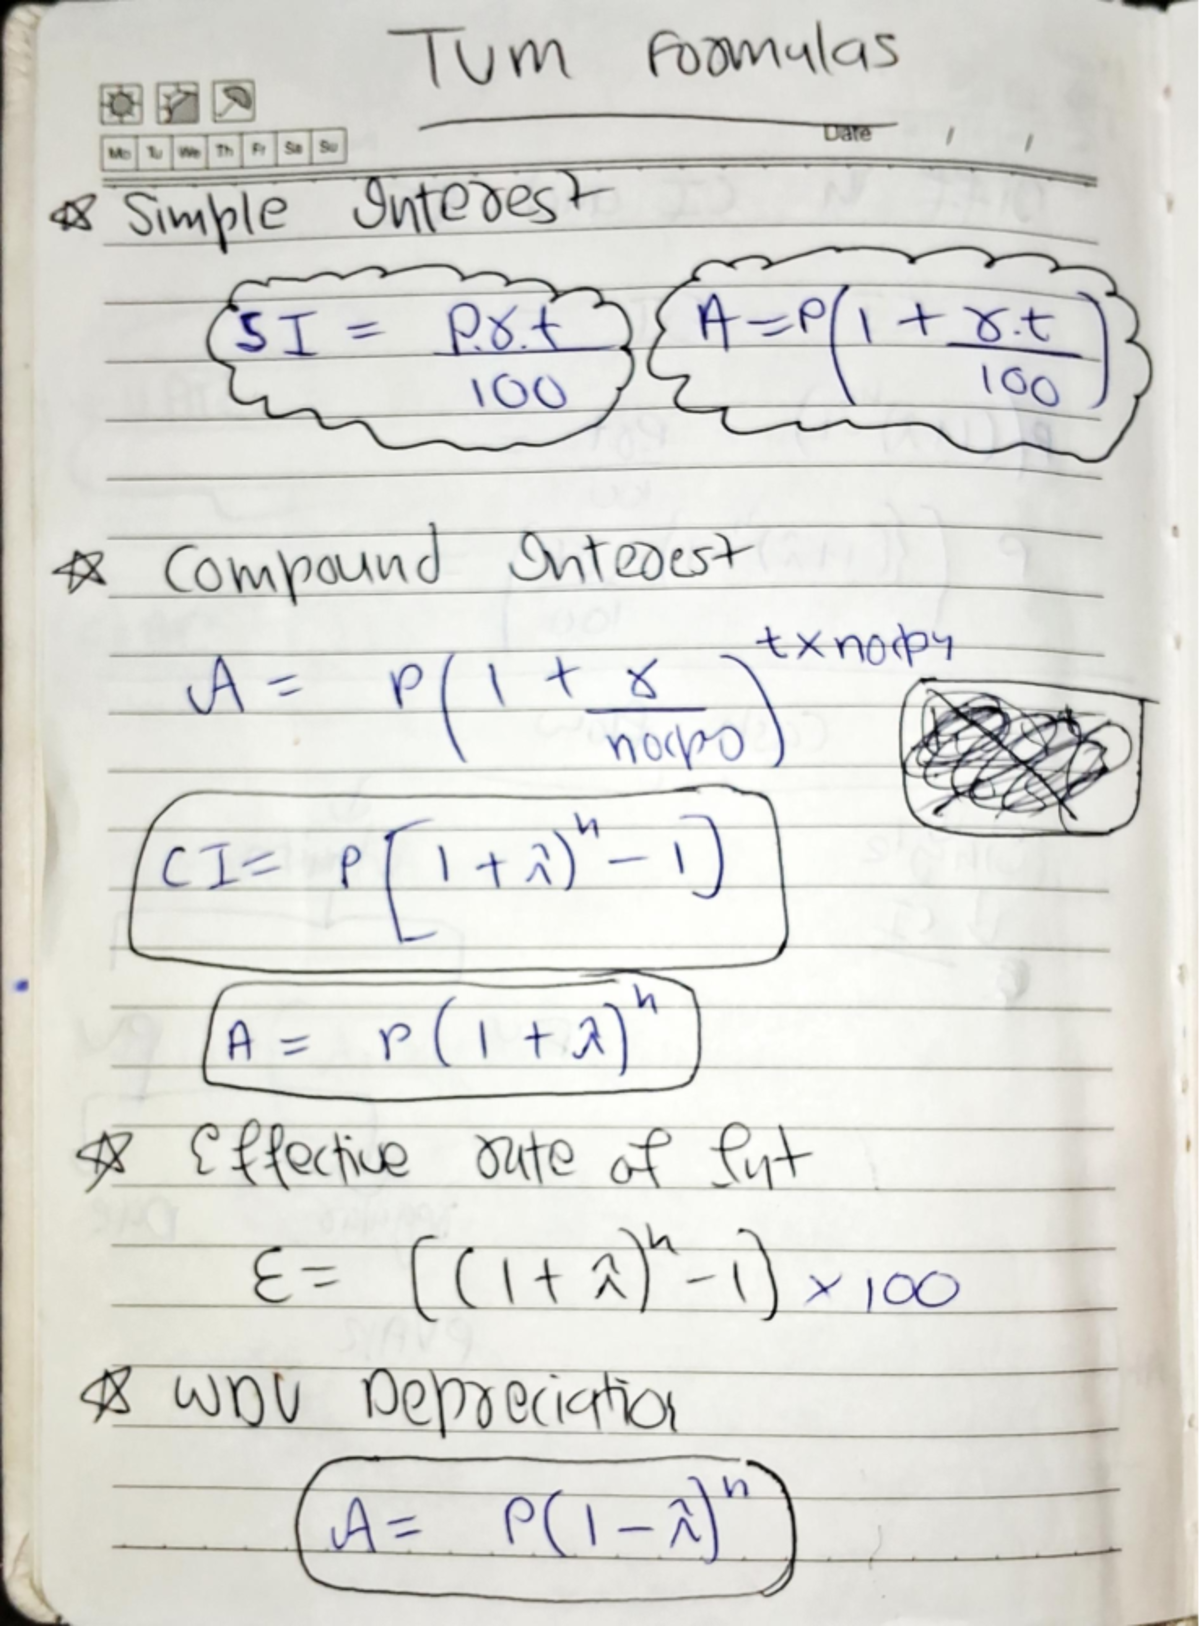 TVM Formulas
Mo Tu We Th Fr Sa Su
Date / /
☆ Simple Interest
SI = P.r.t / 100
A = P(1 + r.t / 100)
☆ Compound Interest
A = P(1 + r / nocpo)^t×nocpy
CI = P[1 + i)^n - 1]
A = P(1 + i)^n
☆ Effective rate of Int
E = [(1 + i)^n - 1] × 100
☆ WDV Depreciation
A = P(1 - i)^n